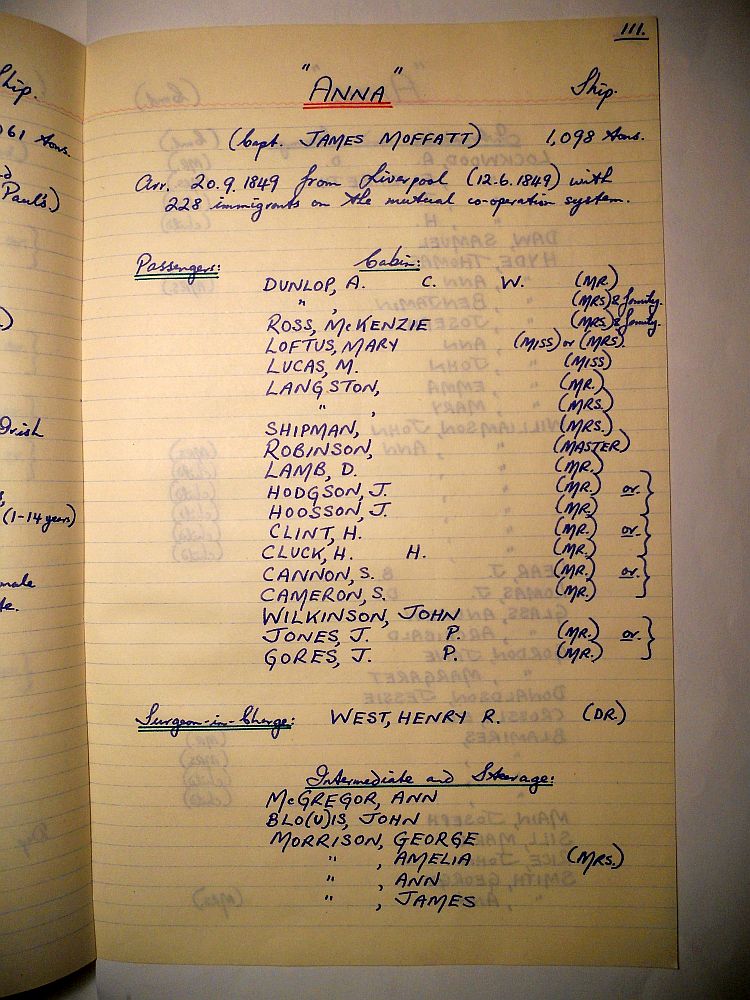 111.
"ANNA" Ship.
(Capt. JAMES MOFFATT) 1,098 tons.
Arr. 20.9.1849 from Liverpool (12.6.1849) with
228 immigrants on the mutual co-operation system.
Passengers: Cabin:
DUNLOP, A. C. W. (MR.)
" , (MRS) & family.
ROSS, McKENZIE (MRS) & family.
LOFTUS, MARY (MISS) or (MRS).
LUCAS, M. (MISS)
LANGSTON, (MR.)
" , (MRS.)
SHIPMAN, (MRS.)
ROBINSON, (MASTER)
LAMB, D. (MR.)
HODGSON, J. (MR.) or }
HOOSSON, J. (MR.)
CLINT, H. (MR.) or }
CLUCK, H. H. (MR.)
CANNON, S. (MR.) or }
CAMERON, S. (MR.)
WILKINSON, JOHN
JONES, J. P. (MR.) or }
GORES, J. P. (MR.)
Surgeon-in-Charge: WEST, HENRY R. (DR.)
Intermediate and Steerage:
McGREGOR, ANN
BLO(U)IS, JOHN
MORRISON, GEORGE
" , AMELIA (MRS.)
" , ANN
" , JAMES
Ship.
061 tons.
Paul's.)
Irish
(1-14 years)